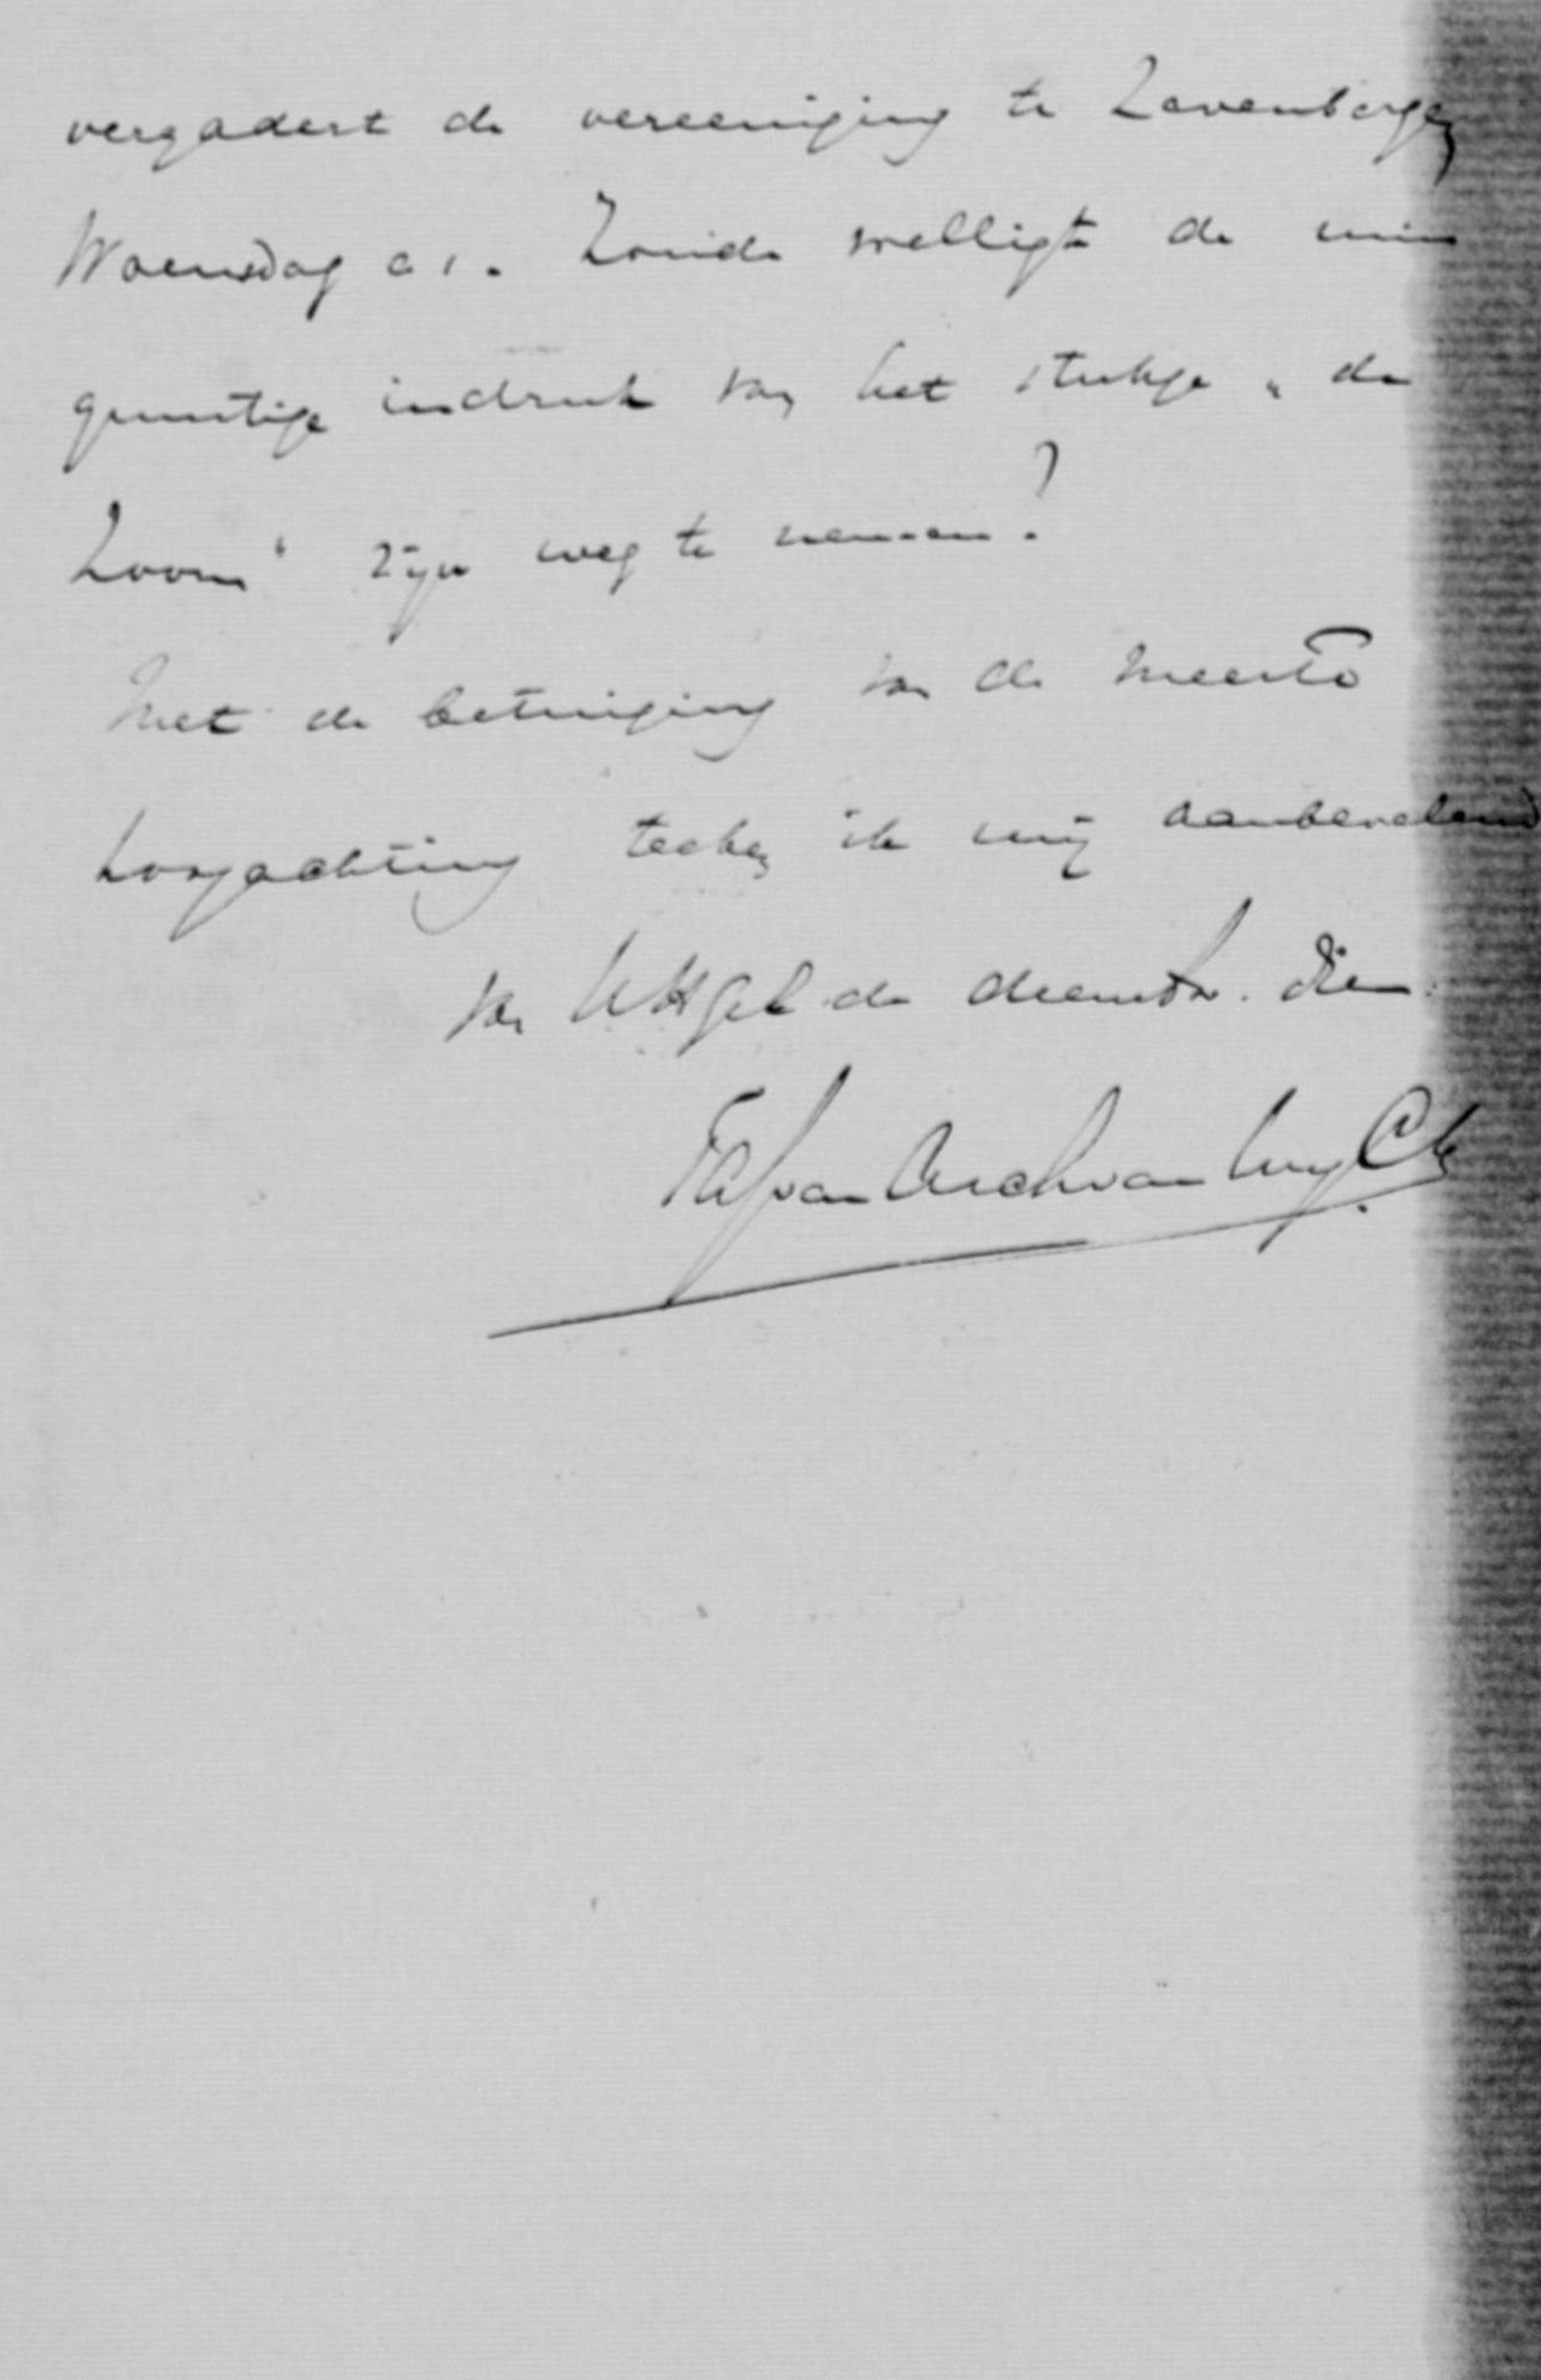 vergadert de vereeniging te Zevenbergen
Woensdag a s. Zoude welligt de min
gunstige indruk van het stukje „de
Zoom" zijn weg te nemen?
Met de betuiging van de meeste
hoogachting teeken ik mij aanbevelend
van UHgel de dienstw. dien.
van Asch van Wijck